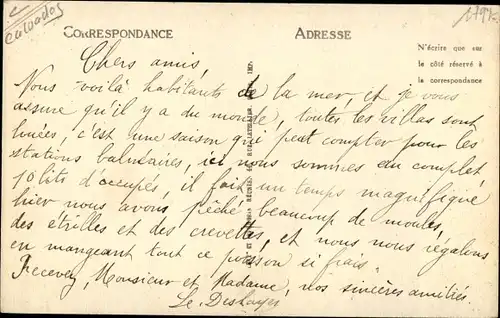 Calvados
CORRESPONDANCE
ADRESSE
N'écrire que sur
le côté réservé à
la correspondance
Chers amis,
Nous voilà habitants de la mer, et je vous
assure qu'il y a du monde, toutes les villas sont
louées, c'est une saison qui peut compter pour les
stations balnéaires, ici nous sommes au complet
10 lits d'occupés, il fait un temps magnifique
hier nous avons pêché beaucoup de moules,
des étrilles et des crevettes, et nous nous régalons
en mangeant tout ce poisson si frais.
Recevez, Monsieur et Madame, nos sincères amitiés.
Le Deshayes